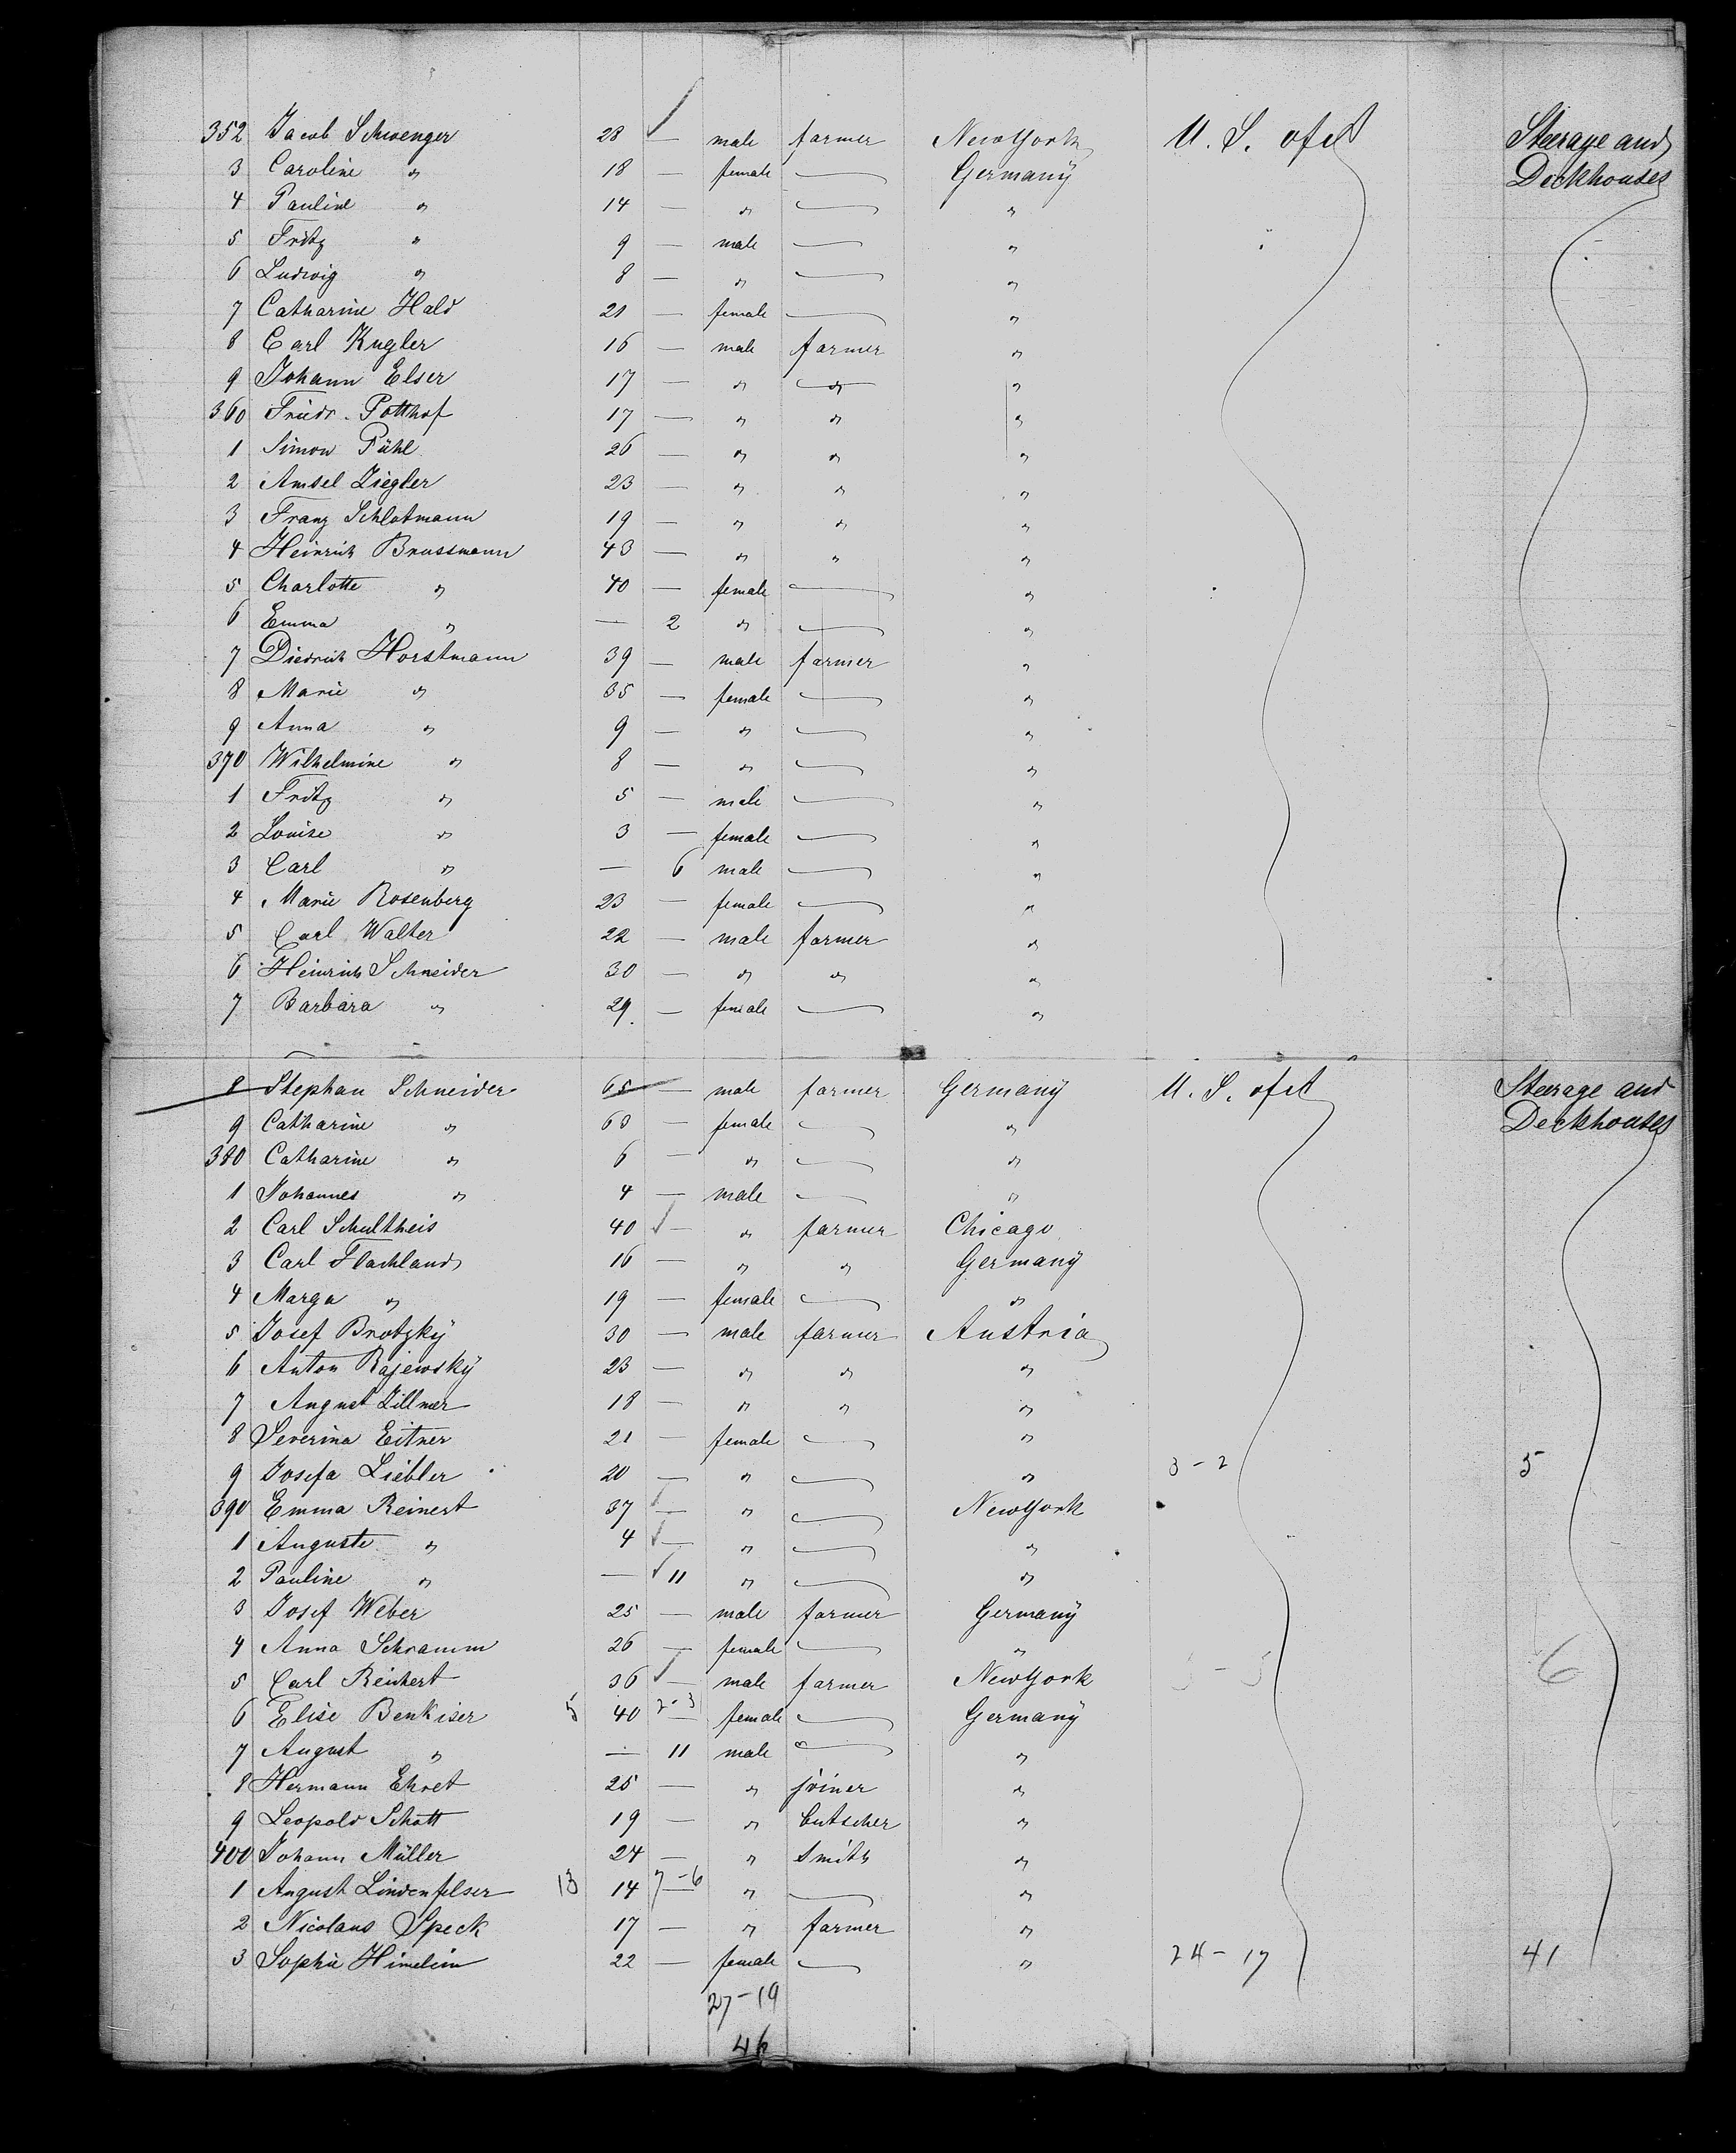 352 Jacob Schwenger 28 — male farmer NewYork U. S. of A Steerage and
3 Caroline " 18 — female — Germanÿ Deckhouses
4 Pauline " 14 — " — "
5 Fritz " 9 — male — "
6 Ludwig " 8 — " — "
7 Catharine Hald 21 — female — "
8 Carl Kugler 16 — male farmer "
9 Johann Elser 17 — " " "
360 Friedr. Potthof 17 — " " "
1 Simon Pühl 26 — " " "
2 Amsel Ziegler 23 — " " "
3 Franz Schlotmann 19 — " " "
4 Heinrich Brussmann 43 — " " "
5 Charlotte " 40 — female — "
6 Emma " — 2 " — "
7 Diedrich Horstmann 39 — male farmer "
8 Marie " 35 — female — "
9 Anna " 9 — " — "
370 Wilhelmine " 8 — " — "
1 Fritz " 5 — male — "
2 Louise " 3 — female — "
3 Carl " — 6 male — "
4 Marie Rosenberg 23 — female — "
5 Carl Walter 22 — male farmer "
6 Heinrich Schneider 30 — " " "
7 Barbara " 29. — female — "
8 Stephan Schneider 65 — male farmer Germanÿ U. S. of A Steerage and
9 Catharine " 63 — female — " Deckhouses
380 Catharine " 6 — " — "
1 Johannes " 4 — male — "
2 Carl Schultheis 40 — " farmer Chicago
3 Carl Flachland 16 — " " Germanÿ
4 Marga " 19 — female — "
5 Josef Brotzkÿ 30 — male farmer Austria
6 Anton Rajewskÿ 23 — " " "
7 August Zillmer 18 — " " "
8 Severina Eitner 21 — female — "
9 Josefa Liebler 20 — " — " 3 - 2 5
390 Emma Reinert 37 — " — NewYork
1 Auguste " 4 — " — "
2 Pauline " — 11 " — "
3 Josef Weber 25 — male farmer Germanÿ
4 Anna Schramm 26 — female — "
5 Carl Reichert 36 — male farmer NewYork 6
6 Elise Benkiser 5 40 2-3 — female — Germanÿ
7 August " — 11 male — "
8 Hermann Ehret 25 — " joiner "
9 Leopold Schott 19 — " butscher "
400 Johann Müller 24 — " Smith "
1 August Lindenfelser 13 14 7-6 — " — "
2 Nicolaus Speck 17 — " farmer "
3 Sophie Himelein 22 — female — " 24 - 17 41
27-19
46